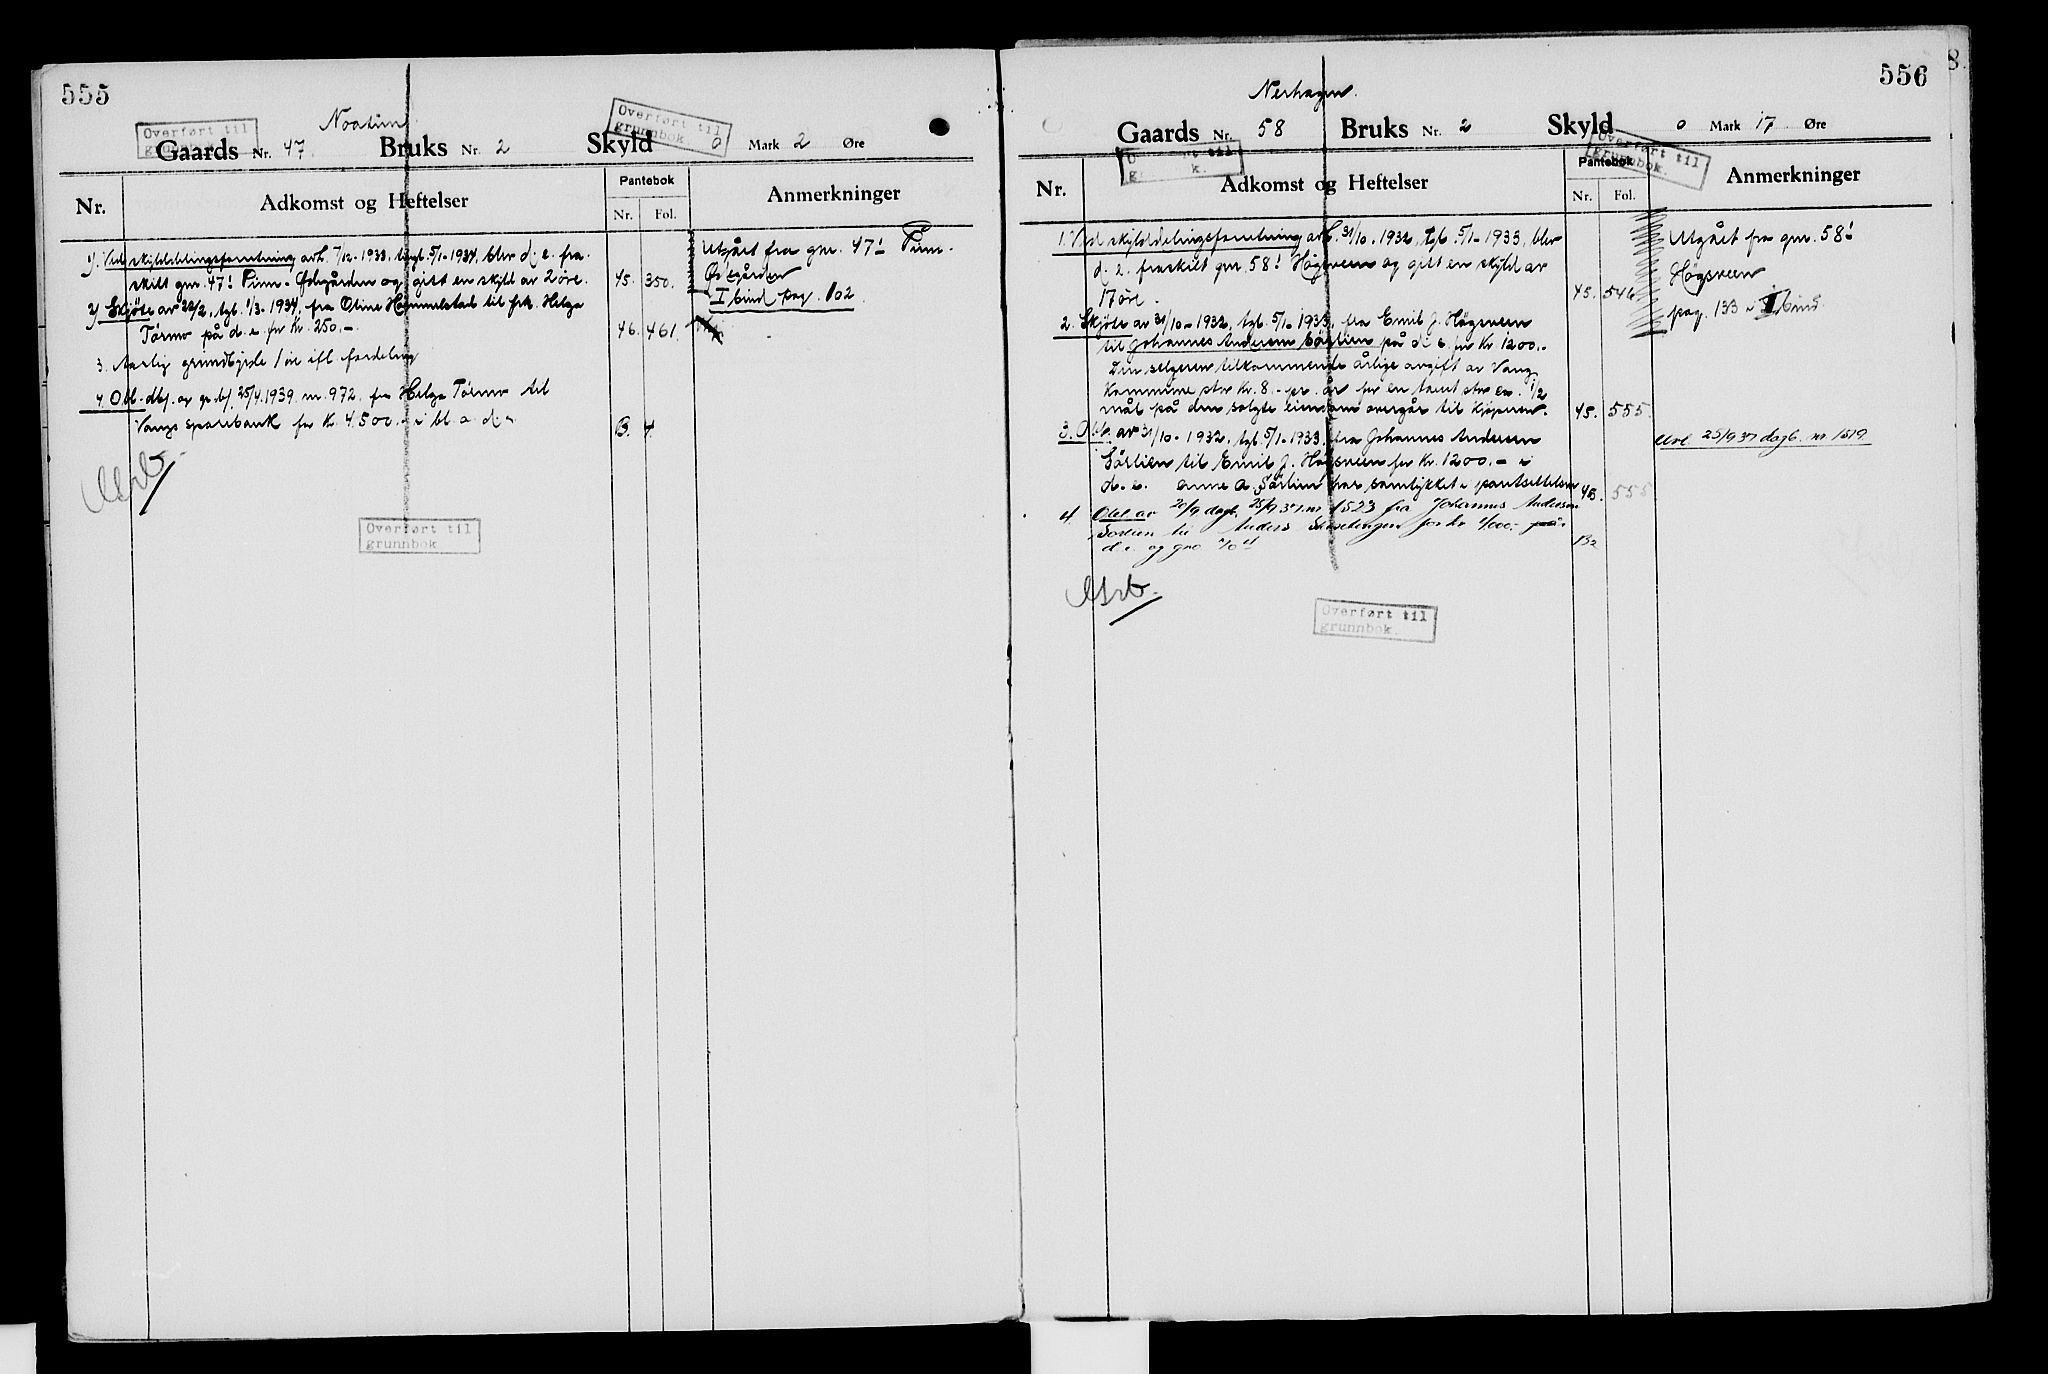 555
Noatun
Overført til
grunnbok
Overført til
grunnbok
Gaards Nr. 47 Bruks Nr. 2 Skyld 0 Mark 2 Øre
Nr. Adkomst og Heftelser Pantebok Nr. Fol. Anmerkninger
1) Ved skylddelingsforretning avh. 7/12-1933, tingl. 5/1-1934, blev d. e. fra-
skilt gnr. 47¹ Finn-Østgården og gitt en skyld av 2 øre. 45. 350.
2) Skjöte av 22/2, tgl. 1/3-1934, fra Oline Hommelstad til frk. Helga
Tørmo på d. e. for Kr. 250.- 46. 461.
3. Aarlig grundbyrde 1 øre ifl. fordeling
4. Obl. dbf. av gr. bf. 25/4.1939 nr. 972. fra Helga Tørmo til
Vangs sparebank for Kr. 4.500.- i bl. a. d. e. B. 4.
Utgået fra gnr. 47¹ Finn-
Østgården
I bind pag. 102.
Overført til
grunnbok
556
Nerhagen.
Gaards Nr. 58 Bruks Nr. 2 Skyld 0 Mark 17 Øre
Overført til
grunnbok.
Nr. Adkomst og Heftelser Pantebok Nr. Fol. Anmerkninger
1. Ved skylddelingsforretning avh. 31/10.1932, tgl. 5/1-1933, blev
d. e. fraskilt gnr. 58¹ Högsveen og gitt en skyld av
17 øre. 45. 546
2. Skjöte av 31/10-1932, tgl. 5/1-1933, fra Emil J. Högsveen
til Johannes Andersen Sörlien på d. e. for Kr. 1200.-
Den selgeren tilkommende årlige avgift av Vang
Kommune stor Kr. 8.- pr. år for en tomt stor en 1/2
mål på den solgte eiendom overgår til kjøperen. 45. 555.
3. Obl. av 31/10-1932, tgl. 5/1-1933, fra Johannes Andersen
Sörlien til Emil J. Högsveen for Kr. 1200.- i
d. e. Anne A. Sörlien har samtykket i pantsettelsen 45. 555
4. Obl. av 20/9 dagb. 25/9 37 nr 1523 fra Johannes Andersen
Sörlien til Anders for kr 4000.-
d. e. og gno B2
Utgået fra gnr. 58¹
Högsveen
pag. 133 i I bind
Avl 25/9 37 dagb. nr 1519
Overført til
grunnbok.